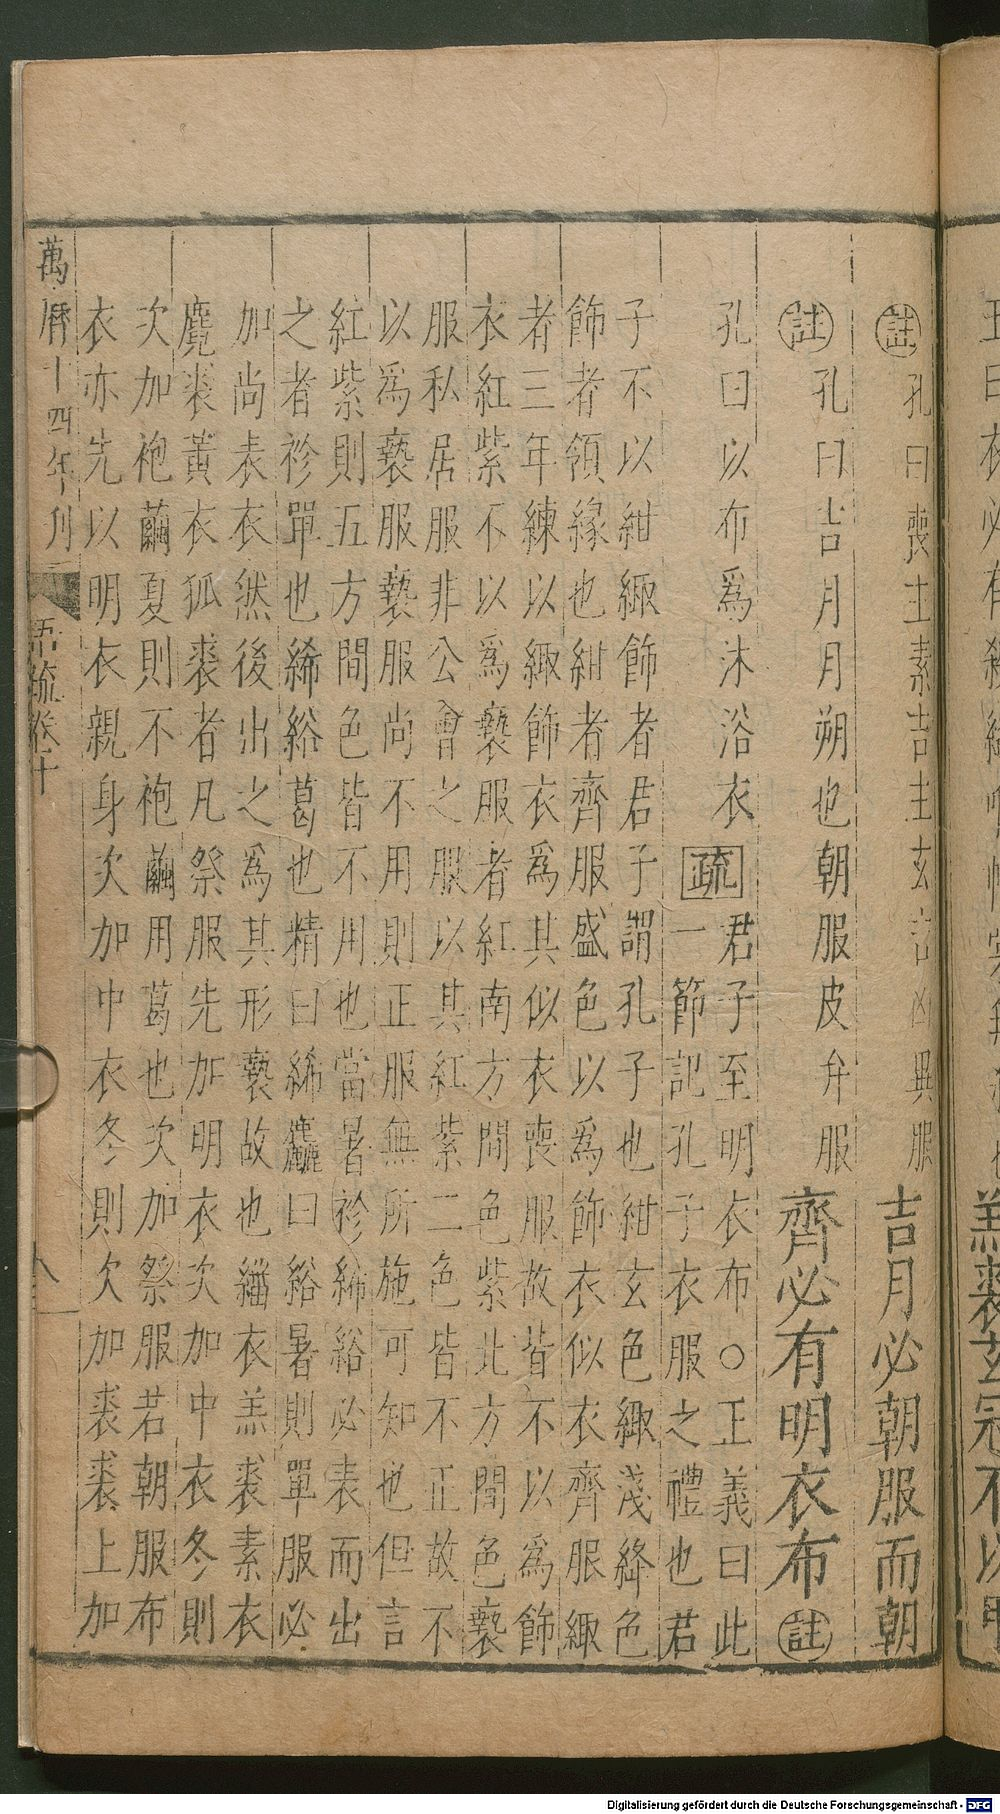 ㊟孔曰喪主素吉主玄吉凶異服
吉月必朝服而朝
㊟孔曰吉月月朔也朝服皮弁服
齊必有明衣布㊟
孔曰以布爲沐浴衣
疏
君子至明衣布○正義曰此
一節記孔子衣服之禮也君
子不以紺緅飾者君子謂孔子也紺玄色緅淺絳色
飾者領緣也紺者齊服盛色以爲飾衣似衣齊服緅
者三年練以緅飾衣爲其似衣喪服故皆不以爲飾
衣紅紫不以爲褻服者紅南方間色紫北方間色褻
服私居服非公會之服以其紅紫二色皆不正故不
以爲褻服褻服尚不用則正服無所施可知也但言
紅紫則五方間色皆不用也當暑袗絺綌必表而出
之者袗單也絺綌葛也精曰絺麤曰綌暑則單服必
加尚表衣然後出之爲其形褻故也緇衣羔裘素衣
麑裘黃衣狐裘者凡祭服先加明衣次加中衣冬則
次加袍繭夏則不袍繭用葛也次加祭服若朝服布
衣亦先以明衣親身次加中衣冬則次加裘裘上加
萬曆十四年刊
語疏卷十
八
羔裘玄冠不以
Digitalisierung gefördert durch die Deutsche Forschungsgemeinschaft - DFG